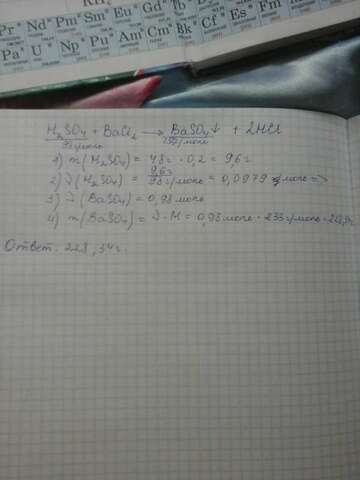 Pr Nd Pm Sm Eu Gd Tb
Pa U Np Pu Am Cm Bk Cf Es Fm
H₂SO₄ + BaCl₂ → BaSO₄↓ + 2HCl
98г/моль 233г/моль
1) m(H₂SO₄) = 48г · 0,2 = 9,6г
2) ν(H₂SO₄) = 9,6г / 98г/моль = 0,0979 моль =>
3) ν(BaSO₄) = 0,98моль
4) m(BaSO₄) = ν · M = 0,98моль · 233г/моль =
Ответ: 228,34г.